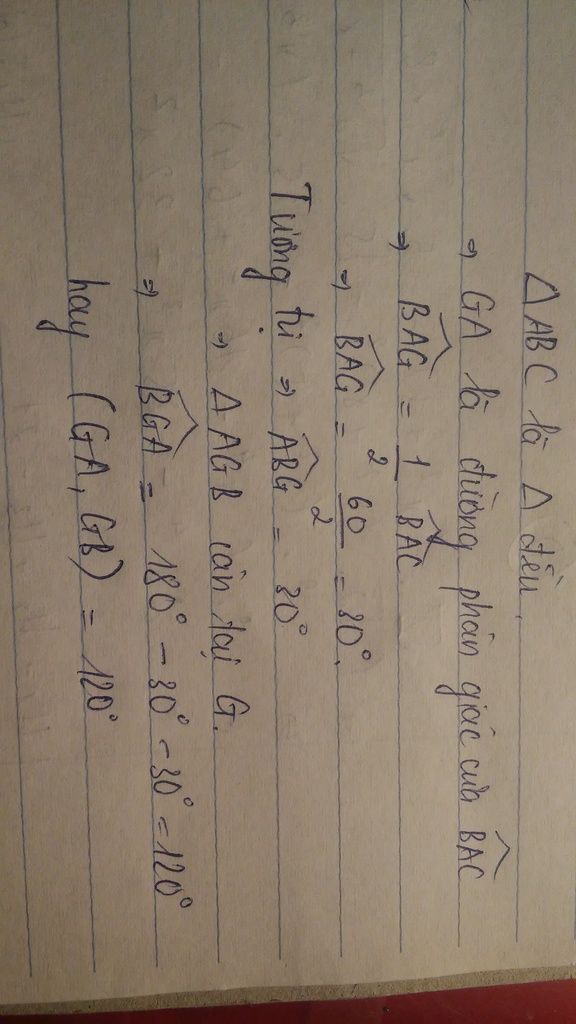 Δ ABC là Δ đều.
⇒ GA là đường phân giác của \widehat{BAC}
⇒ \widehat{BAG} = \frac{1}{2} \widehat{BAC}
⇒ \widehat{BAG} = \frac{60}{2} = 30°.
Tương tự ⇒ \widehat{ABG} = 30°
⇒ Δ AGB cân tại G.
⇒ \widehat{BGA} = 180° - 30° - 30° = 120°
hay (GA, GB) = 120°